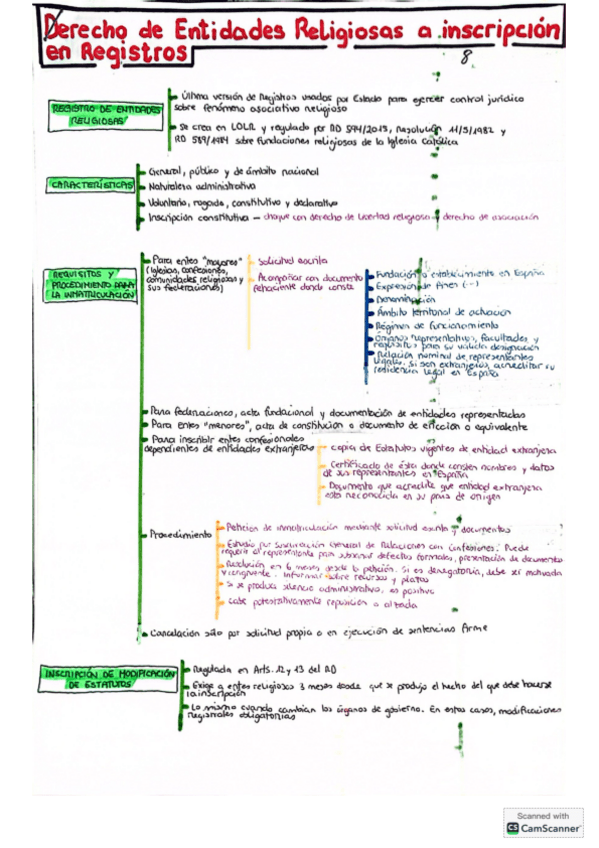 Derecho de Entidades Religiosas a inscripción
en Registros
8
REGISTRO DE ENTIDADES
RELIGIOSAS
Última versión de Registros usados por Estado para ejercer control jurídico
sobre fenómeno asociativo religioso
Se crea en LOLR y regulado por RD 594/2015, Resolución 11/3/1982 y
RD 589/1984 sobre fundaciones religiosas de la Iglesia Católica
CARACTERÍSTICAS
General, público y de ámbito nacional
Naturaleza administrativa
Voluntario, rogado, constitutivo y declarativo
Inscripción constitutiva – choque con derecho de libertad religiosa y derecho de asociación
REQUISITOS Y
PROCEDIMIENTO PARA
LA INMATRICULACIÓN
Para entes "mayores"
(Iglesias, confesiones,
comunidades religiosas y
sus federaciones)
Solicitud escrita
Acompañar con documento
fehaciente donde consta
Fundación o establecimiento en España
Expresión de fines (...)
Denominación
Ámbito territorial de actuación
Régimen de funcionamiento
Órganos representativos, facultades y
requisitos para su válida designación
Relación nominal de representantes
legales. Si son extranjeros, acreditar su
residencia legal en España
Para federaciones, acta fundacional y documentación de entidades representadas
Para entes "menores", acta de constitución o documento de erección o equivalente
Para inscribir entes confesionales
dependientes de entidades extranjeras
copia de Estatutos vigentes de entidad extranjera
Certificado de ésta donde consten nombres y datos
de sus representantes en España
Documento que acredite que entidad extranjera
está reconocida en su país de origen
Procedimiento
Petición de inmatriculación mediante solicitud escrita y documentos
Estudio por Subdirección General de Relaciones con Confesiones. Puede
requerir al representante para subsanar defectos formales, presentación de documento
Resolución en 6 meses desde la petición. Si es denegatoria, debe ser motivada
y congruente. Informar sobre recursos y plazos
Si se produce silencio administrativo, es positivo
Cabe potestativamente reposición o alzada
Cancelación sólo por solicitud propia o en ejecución de sentencias firme
INSCRIPCIÓN DE MODIFICACIÓN
DE ESTATUTOS
Regulada en Arts. 12 y 13 del RD
Exige a entes religiosos 3 meses desde que se produjo el hecho del que debe hacerse
la inscripción
Lo mismo cuando cambian los órganos de gobierno. En estos casos, modificaciones
registrales obligatorias
Scanned with
CS CamScanner